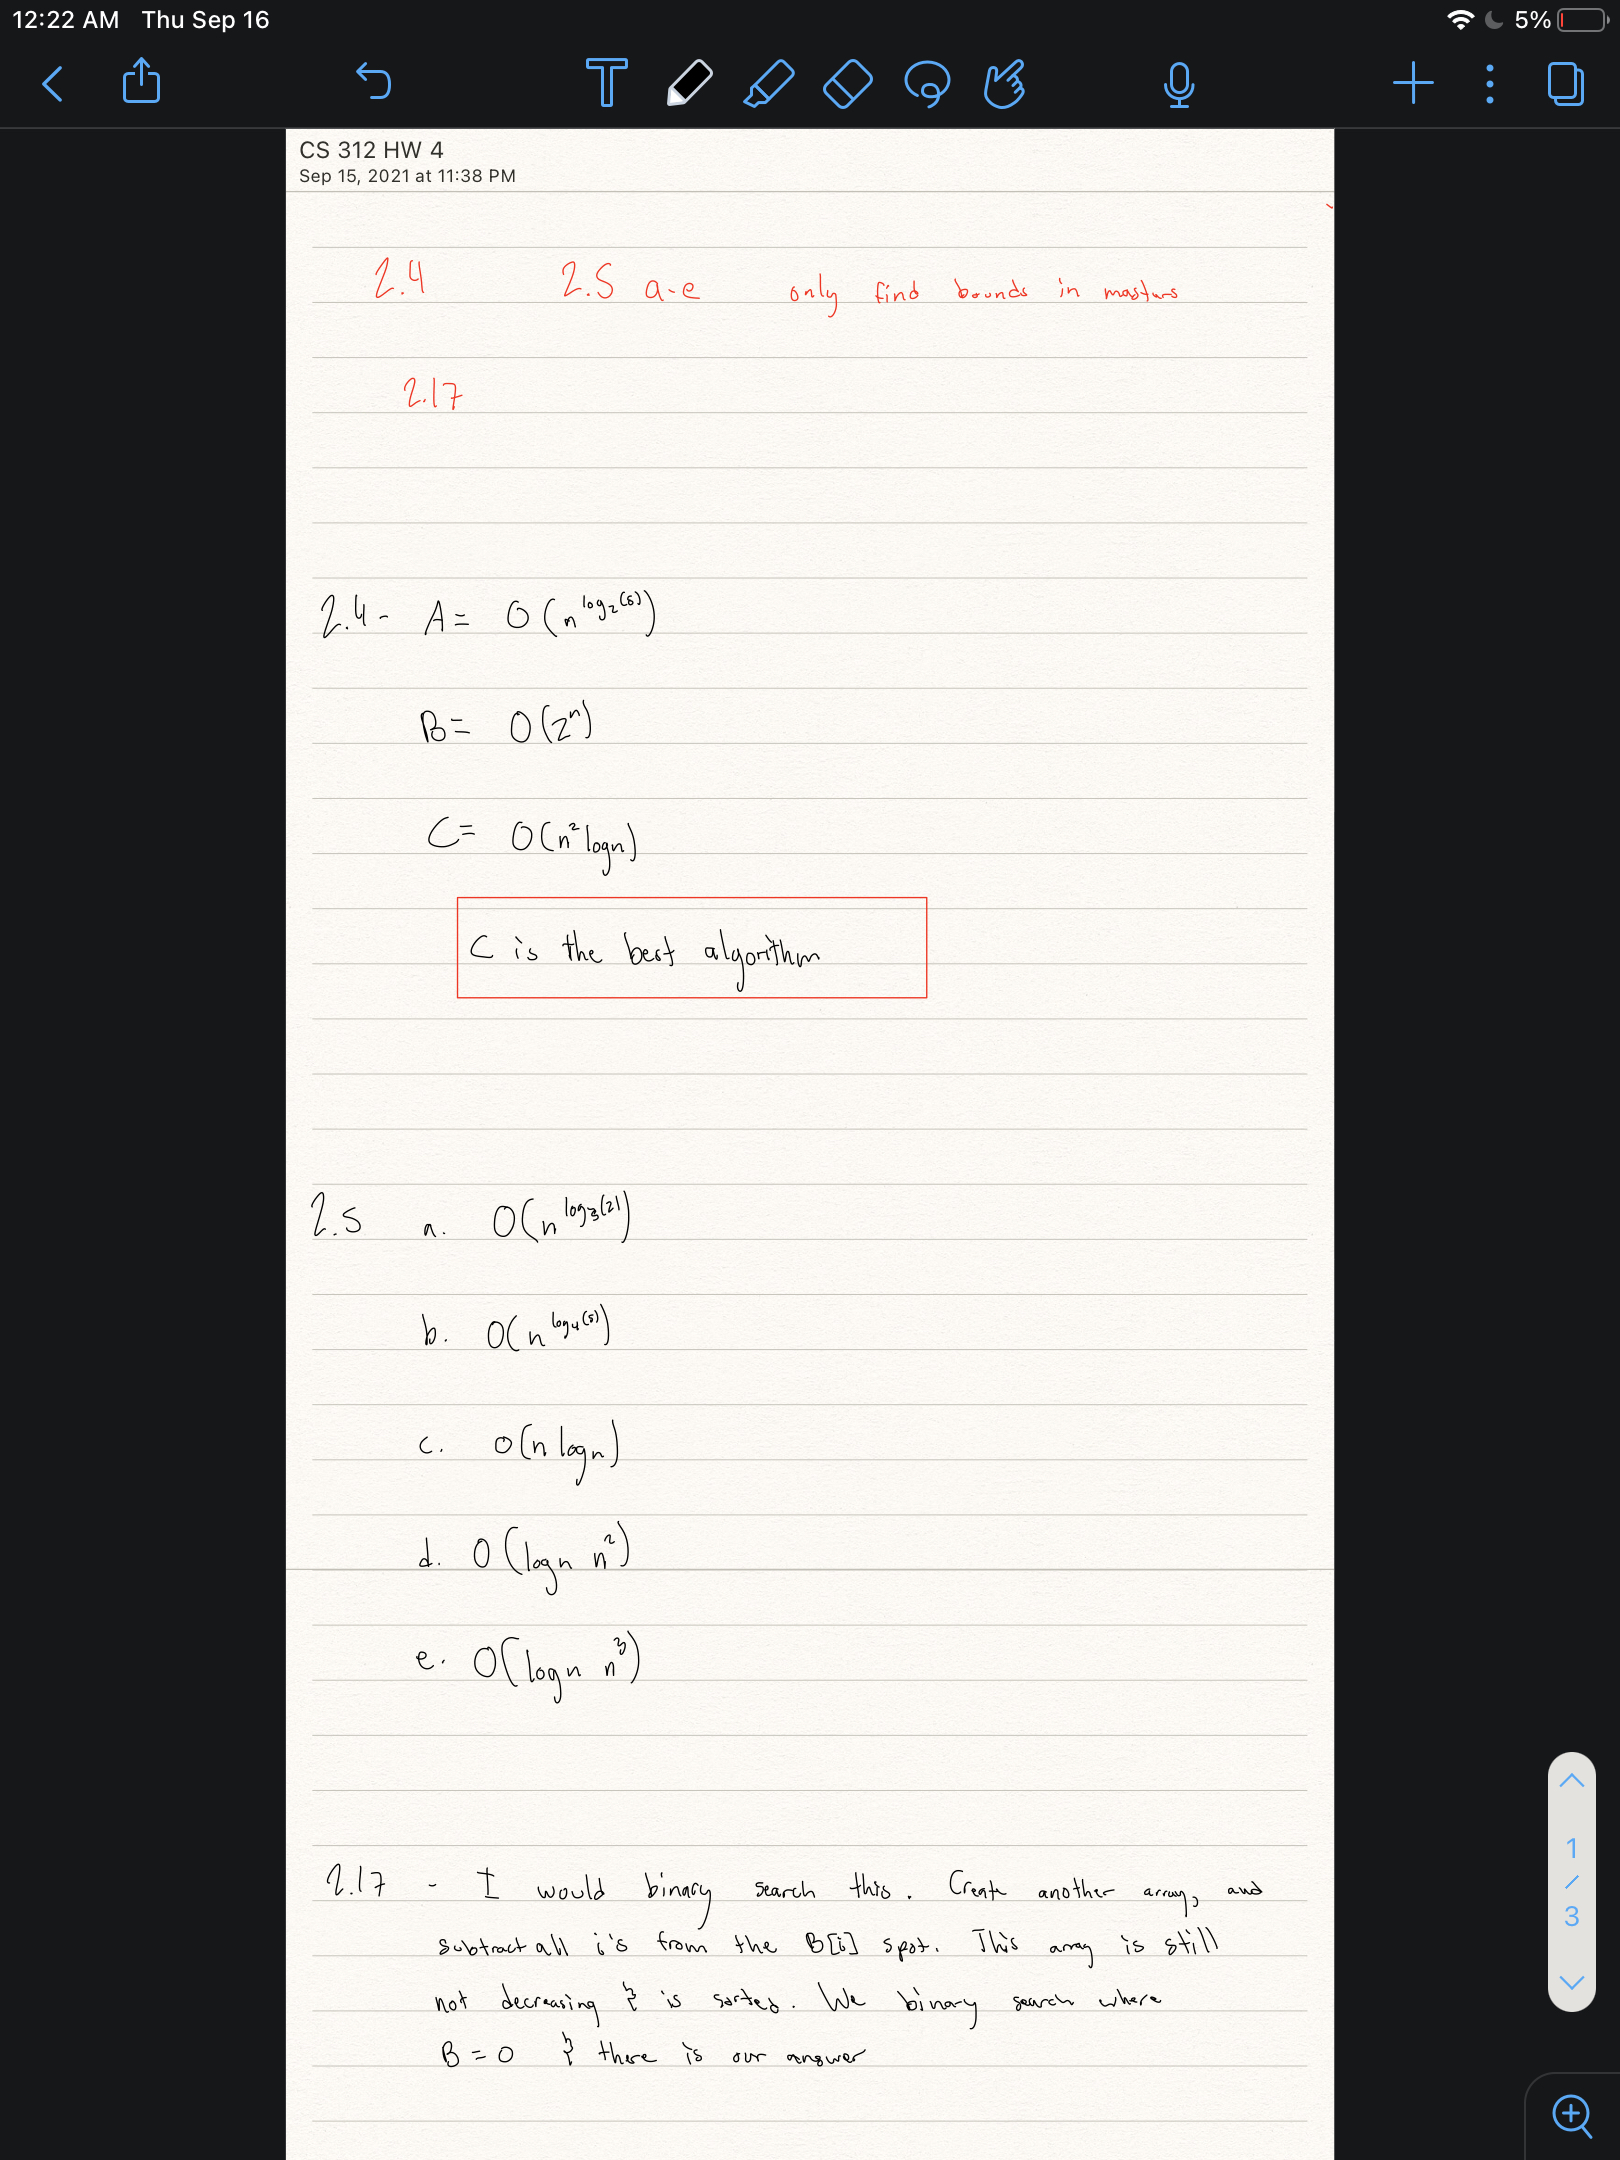 12:22 AM Thu Sep 16 5%
CS 312 HW 4
Sep 15, 2021 at 11:38 PM
2.4 2.5 a-e only find bounds in masters
2.17
2.4- A= O(n^log₂(5))
B= O(2ⁿ)
C= O(n² logn)
C is the best algorithm
2.5 a. O(n^log₃(2))
b. O(n^log₄(5))
c. O(n logn)
d. O(logn n²)
e. O(logn n³)
2.17 - I would binary search this. Create another array, and
subtract all i's from the B[i] spot. This array is still
not decreasing & is sorted. We binary search where
B=0 & there is our answer
1
/
3